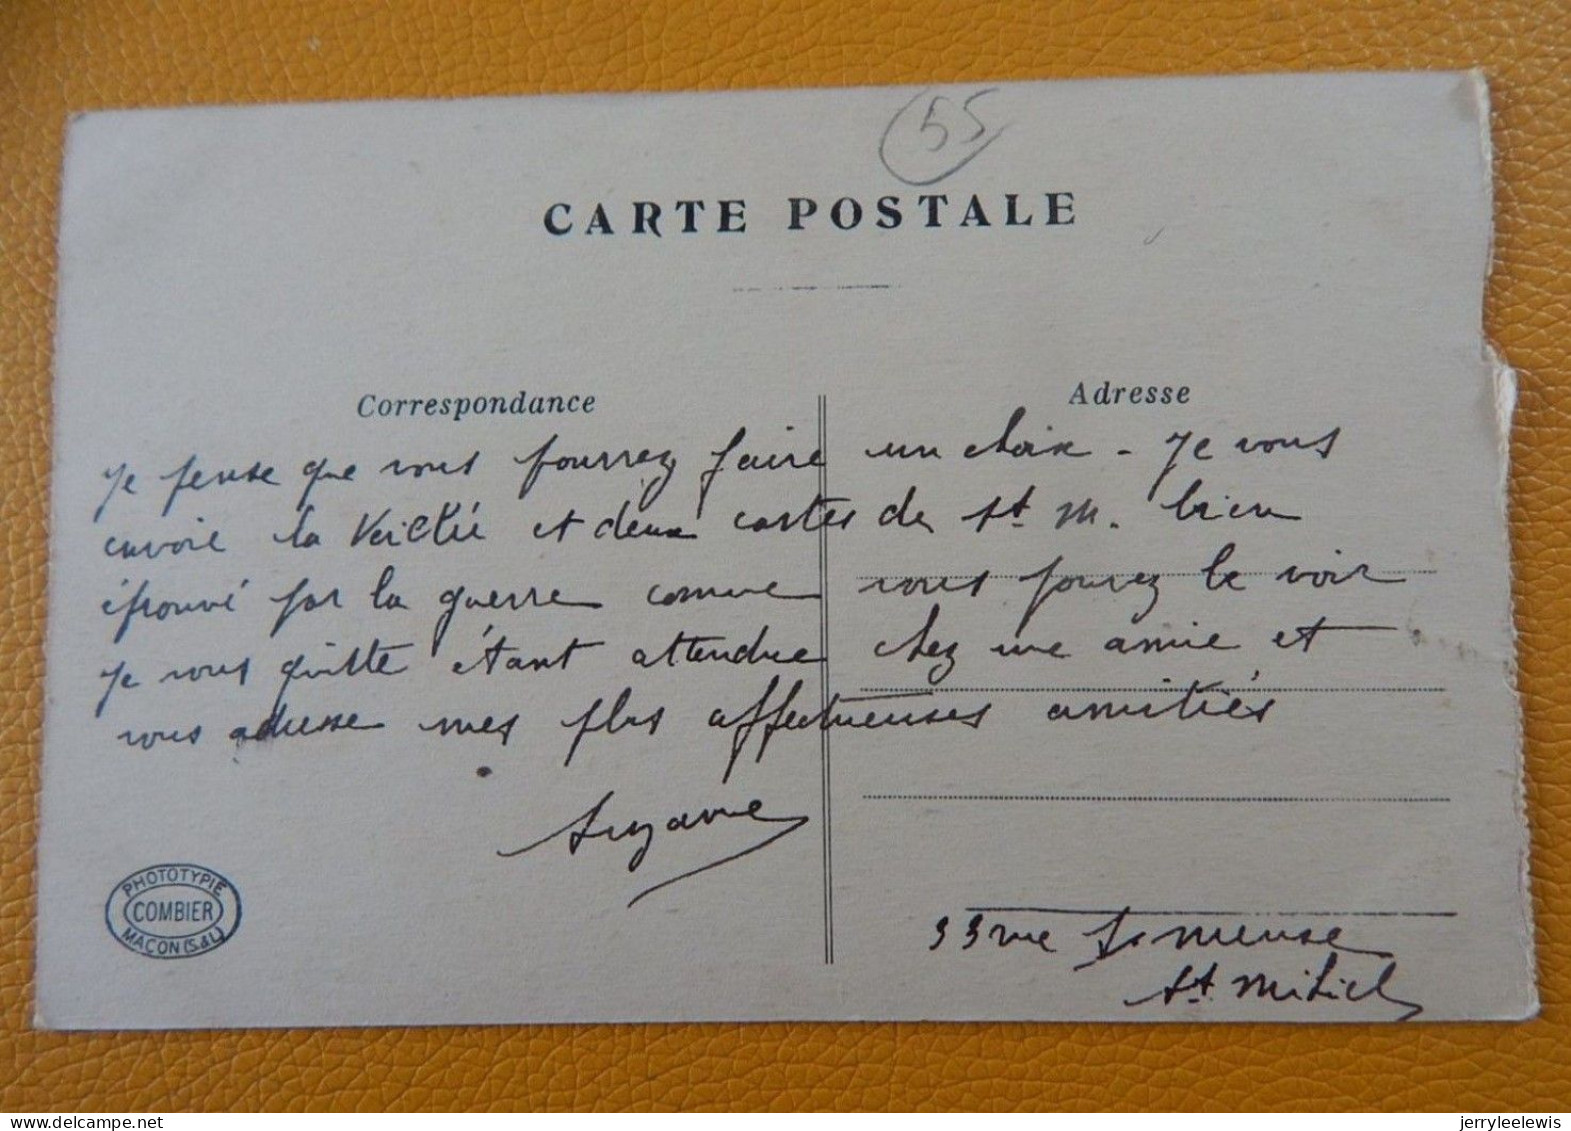 55
CARTE POSTALE
Correspondance
Adresse
Je pense que vous pourrez faire un choix - Je vous
envoie la et deux cartes de St. M. bien
éprouvé par la guerre comme vous pouvez le voir
Je vous quitte étant attendue chez une amie et
vous adresse mes plus affectueuses amitiés
Suzanne
PHOTOTYPIE
COMBIER
MACON (S.&L)
33 rue s. meuse
St. Mihiel
jerryleelewis
www.delcampe.net